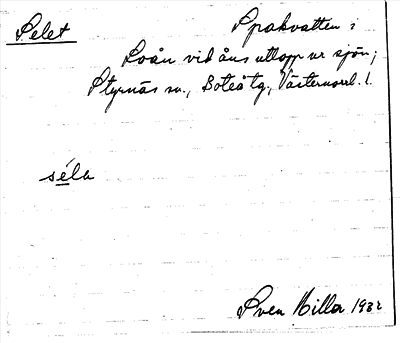 Selet
Spakvatten i
Loån vid åns utlopp ur sjön;
Styrnäs sn., Boteå tg., Västernorrl. l.
séla
Sven Hillor 1932